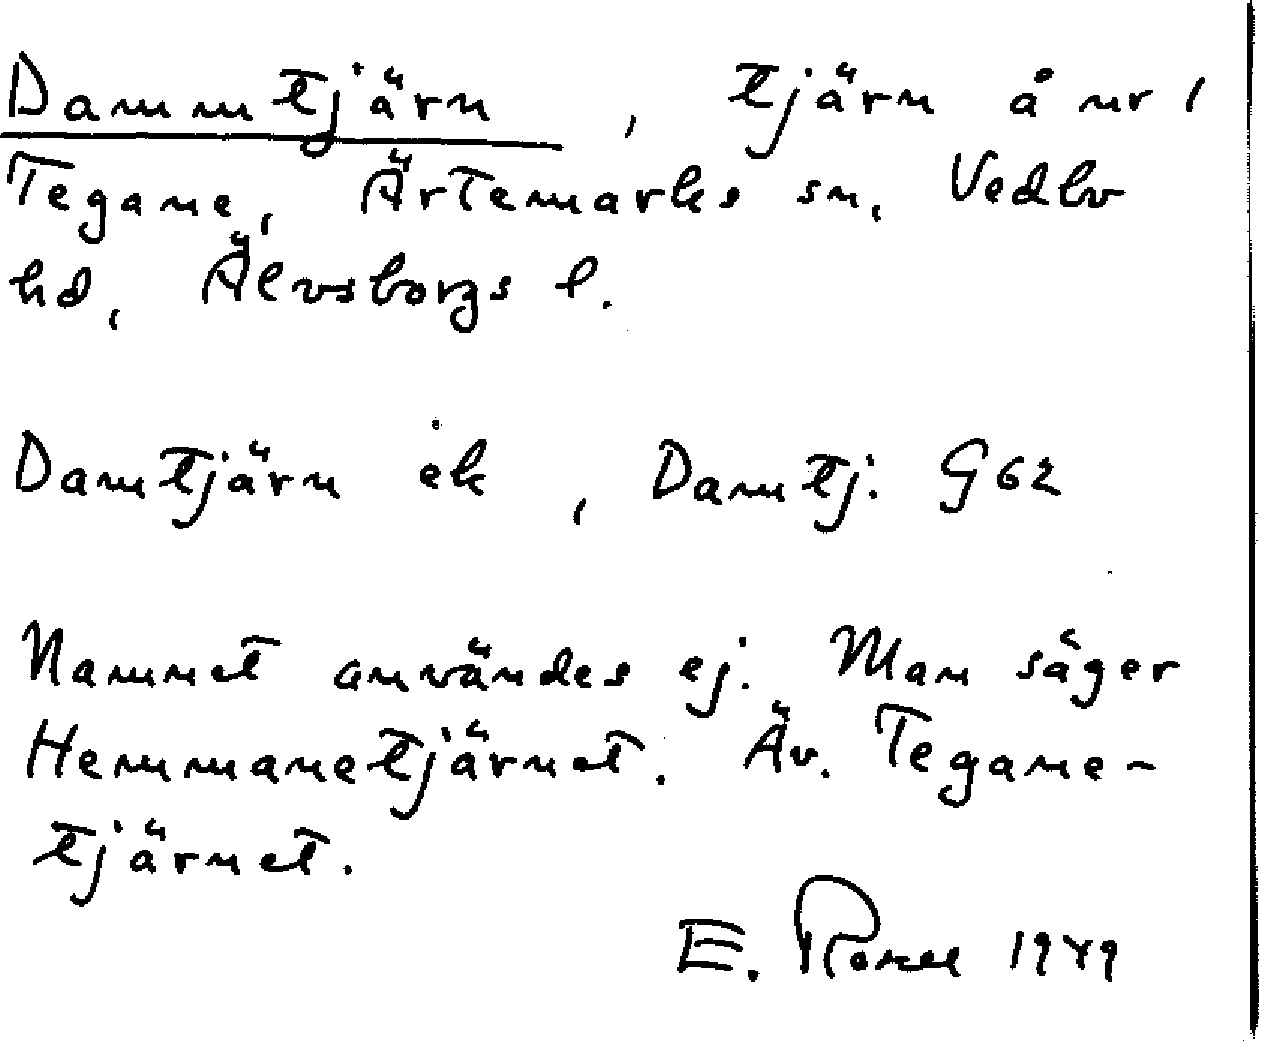 Dammtjärn, tjärn å nr 1
Tegane, Ärtemarks sn, Vedbo
hd, Älvsborgs l.
Damtjärn ek, Damtj. G62
Namnet användes ej. Man säger
Hemmanetjärnet. Äv. Tegane-
tjärnet.
E. 1949